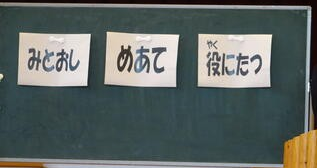 みとおし
めあて
役にたつ
やく